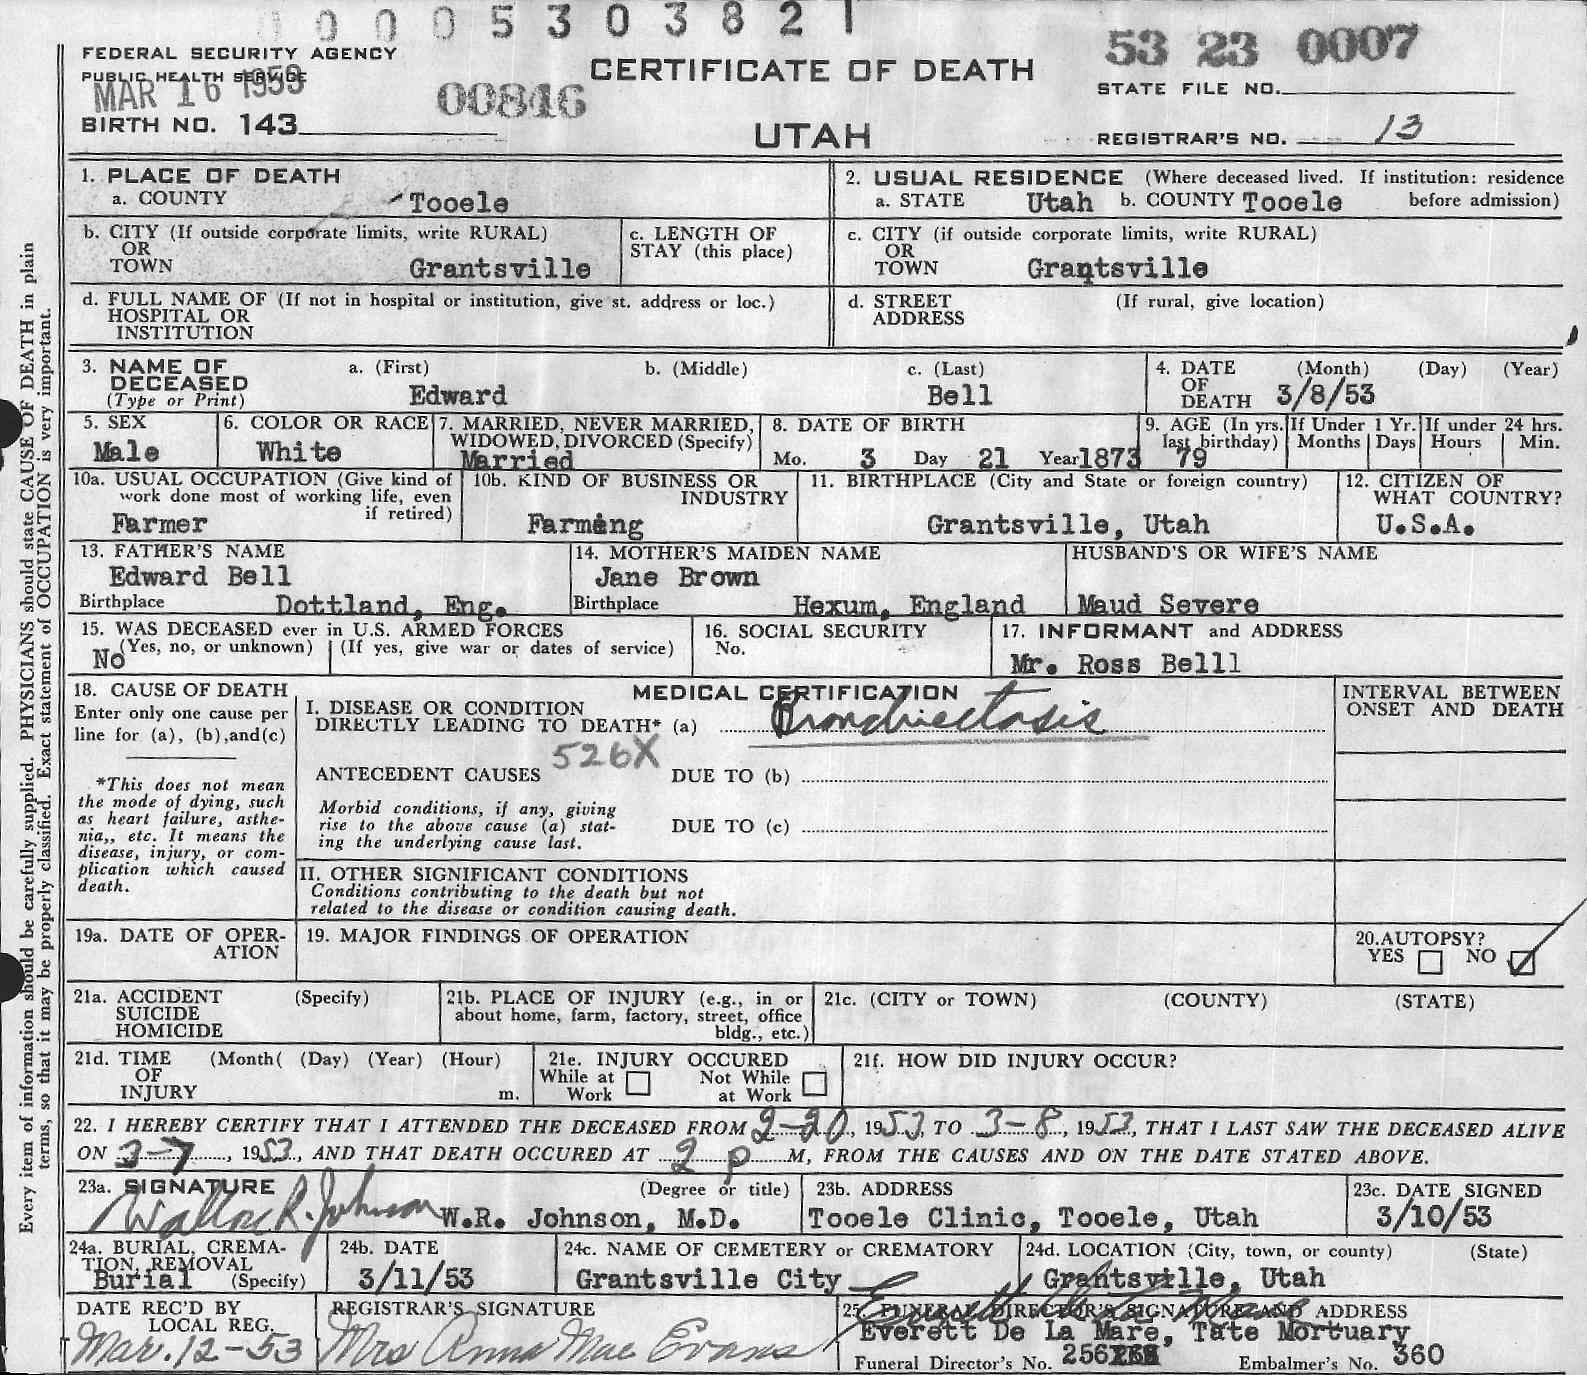 0 0 0 0 5 3 0 3 8 2 1
FEDERAL SECURITY AGENCY
PUBLIC HEALTH SERVICE
MAR 16 1953
00846
BIRTH NO. 143
CERTIFICATE OF DEATH
UTAH
53 23 0007
STATE FILE NO.
REGISTRAR'S NO. 13
1. PLACE OF DEATH
a. COUNTY Tooele
2. USUAL RESIDENCE (Where deceased lived. If institution: residence
a. STATE Utah b. COUNTY Tooele before admission)
b. CITY (If outside corporate limits, write RURAL)
OR
TOWN Grantsville
c. LENGTH OF
STAY (this place)
c. CITY (if outside corporate limits, write RURAL)
OR
TOWN Grantsville
d. FULL NAME OF (If not in hospital or institution, give st. address or loc.)
HOSPITAL OR
INSTITUTION
d. STREET (If rural, give location)
ADDRESS
3. NAME OF a. (First) b. (Middle) c. (Last)
DECEASED
(Type or Print) Edward Bell
4. DATE (Month) (Day) (Year)
OF
DEATH 3/8/53
5. SEX
Male
6. COLOR OR RACE
White
7. MARRIED, NEVER MARRIED,
WIDOWED, DIVORCED (Specify)
Married
8. DATE OF BIRTH
Mo. 3 Day 21 Year 1873
9. AGE (In yrs.
last birthday)
79
If Under 1 Yr.
Months Days
If under 24 hrs.
Hours Min.
10a. USUAL OCCUPATION (Give kind of
work done most of working life, even
if retired)
Farmer
10b. KIND OF BUSINESS OR
INDUSTRY
Farming
11. BIRTHPLACE (City and State or foreign country)
Grantsville, Utah
12. CITIZEN OF
WHAT COUNTRY?
U.S.A.
13. FATHER'S NAME
Edward Bell
Birthplace Dottland, Eng.
14. MOTHER'S MAIDEN NAME
Jane Brown
Birthplace Hexum, England
HUSBAND'S OR WIFE'S NAME
Maud Severe
15. WAS DECEASED ever in U.S. ARMED FORCES
(Yes, no, or unknown) (If yes, give war or dates of service)
No
16. SOCIAL SECURITY
No.
17. INFORMANT and ADDRESS
Mr. Ross Belll
18. CAUSE OF DEATH
Enter only one cause per
line for (a), (b),and(c)
*This does not mean
the mode of dying, such
as heart failure, asthe-
nia,, etc. It means the
disease, injury, or com-
plication which caused
death.
MEDICAL CERTIFICATION
I. DISEASE OR CONDITION
DIRECTLY LEADING TO DEATH* (a) Bronchiectosis
526X
ANTECEDENT CAUSES DUE TO (b)
Morbid conditions, if any, giving
rise to the above cause (a) stat-
ing the underlying cause last.
DUE TO (c)
II. OTHER SIGNIFICANT CONDITIONS
Conditions contributing to the death but not
related to the disease or condition causing death.
INTERVAL BETWEEN
ONSET AND DEATH
19a. DATE OF OPER-
ATION
19. MAJOR FINDINGS OF OPERATION
20.AUTOPSY?
YES NO
21a. ACCIDENT (Specify)
SUICIDE
HOMICIDE
21b. PLACE OF INJURY (e.g., in or
about home, farm, factory, street, office
bldg., etc.)
21c. (CITY or TOWN) (COUNTY) (STATE)
21d. TIME (Month( (Day) (Year) (Hour)
OF
INJURY m.
21e. INJURY OCCURED
While at Not While
Work at Work
21f. HOW DID INJURY OCCUR?
22. I HEREBY CERTIFY THAT I ATTENDED THE DECEASED FROM 2-20, 1953, TO 3-8, 1953, THAT I LAST SAW THE DECEASED ALIVE
ON 3-7, 1953, AND THAT DEATH OCCURED AT 2 p M, FROM THE CAUSES AND ON THE DATE STATED ABOVE.
23a. SIGNATURE (Degree or title)
Wallace R. Johnson W.R. Johnson, M.D.
23b. ADDRESS
Tooele Clinic, Tooele, Utah
23c. DATE SIGNED
3/10/53
24a. BURIAL, CREMA-
TION, REMOVAL
Burial (Specify)
24b. DATE
3/11/53
24c. NAME OF CEMETERY or CREMATORY
Grantsville City
24d. LOCATION (City, town, or county) (State)
Grantsville, Utah
DATE REC'D BY
LOCAL REG.
Mar. 12-53
REGISTRAR'S SIGNATURE
Mrs Anna Mae Evans
25. FUNERAL DIRECTOR'S SIGNATURE AND ADDRESS
Everett De La Mare
Everett De La Mare, Tate Mortuary
Funeral Director's No. 256 Embalmer's No. 360
Every item of information should be carefully supplied. PHYSICIANS should state CAUSE OF DEATH in plain
terms, so that it may be properly classified. Exact statement of OCCUPATION is very important.